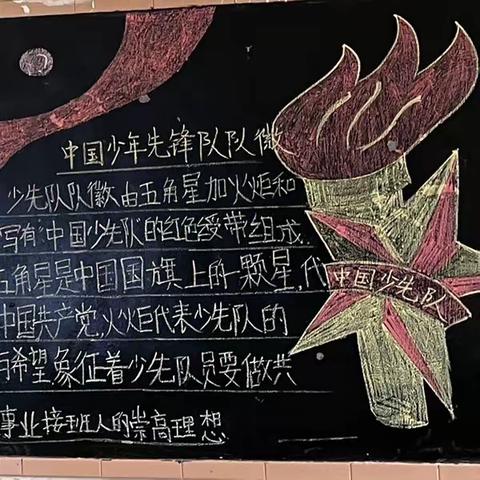 中国少年先锋队队徽
少先队队徽由五角星加火炬和
写有"中国少先队"的红色绶带组成.
五角星是中国国旗上的一颗星,代
中国共产党,火炬代表少先队的
希望,象征着少先队员要做共
事业接班人的崇高理想
中国少先队